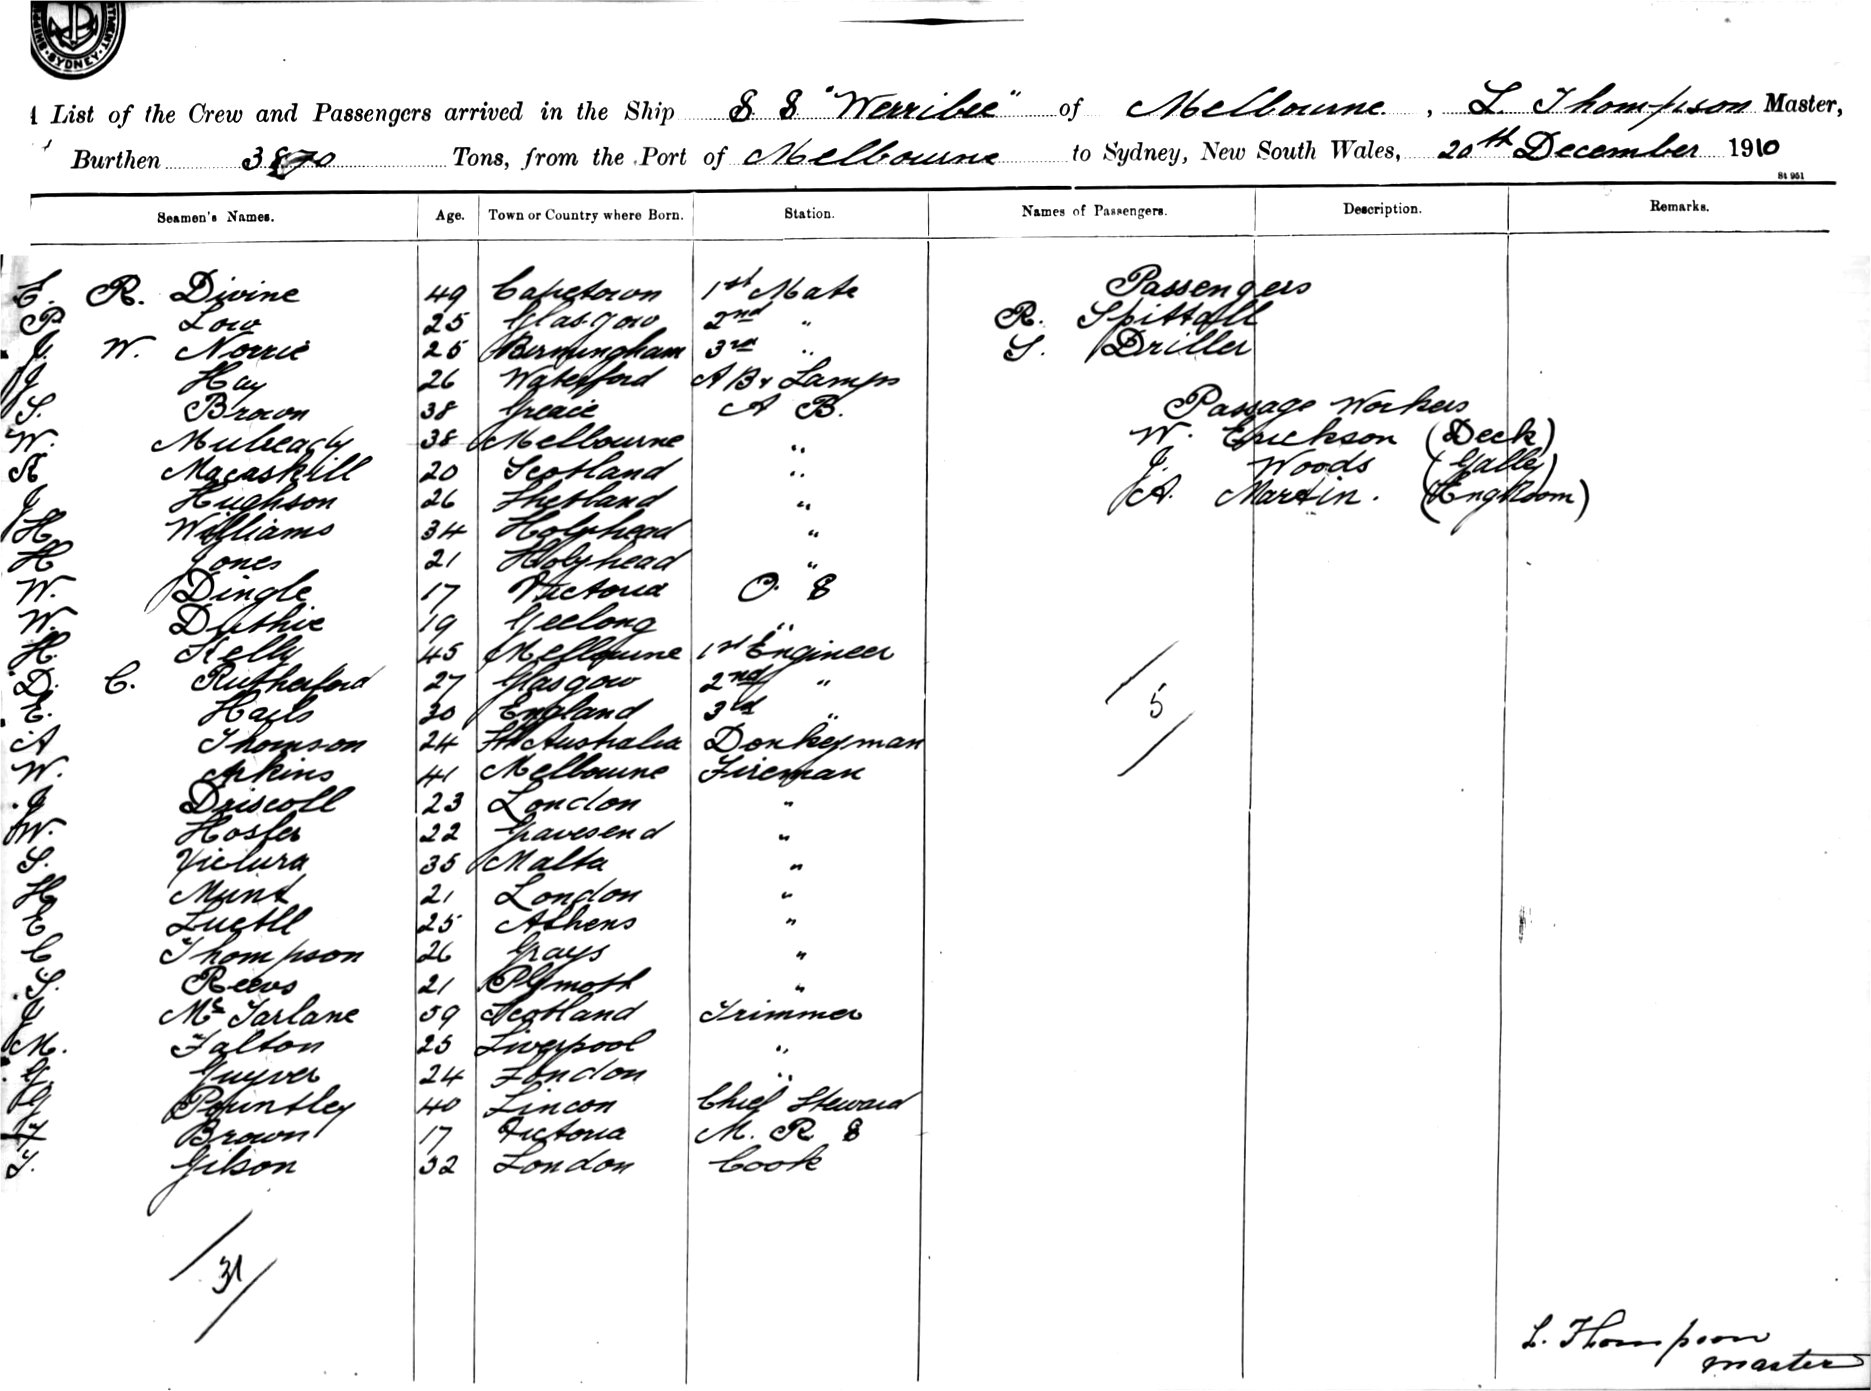 SYDNEY
List of the Crew and Passengers arrived in the Ship S S "Werribee" of Melbourne, L. Thompson Master,
Burthen 3870 Tons, from the Port of Melbourne to Sydney, New South Wales, 20th December 1910
84 951
Seamen's Names. Age. Town or Country where Born. Station. Names of Passengers. Description. Remarks.
E. R. Divine 49 Capetown 1st Mate Passengers
P. Low 25 Glasgow 2nd " R. Spittall
J. W. Norrie 25 Birmingham 3rd " S. Driller
J Hay 26 Waterford A B & Lamps
S. Brown 38 Greace A B. Passage Workers
W. Mulready 38 Melbourne " W. Erickson (Deck)
R Macaskill 20 Scotland " J. Woods (Galley)
J Hughson 26 Shetland " A. Martin. (Eng Room)
H Williams 34 Holyhead "
H Jones 21 Holyhead "
W. Dingle 17 Victoria O. S
W. Duthie 19 Geelong "
H. Kelly 45 Melbourne 1st Engineer
D. C. Rutherford 27 Glasgow 2nd "
E. Hails 30 England 3rd " 5
A Thomson 24 Sth Australia Donkeyman
W. Apkins 41 Melbourne Fireman
J Driscoll 23 London "
W. Hosfer 22 Gravesend "
S. Viclura 35 Malta "
H Munt 21 London "
E 25 Athens "
C Thompson 26 Grays "
S. Reevs 21 Plymoth "
J McFarlane 59 Scotland Trimmer
M. Falton 25 Liverpool "
G. Guyver 24 London "
G Pountley 40 Lincon Chief Steward
Brown 17 Victoria M. R S
T. Gibson 32 London Cook
31
L. Thompson
master